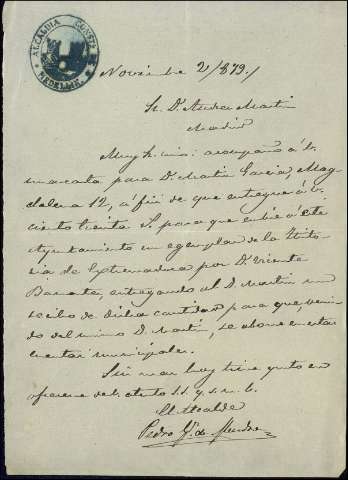 ALCALDIA CONSTL DE MEDELLIN
Noviembre 2/1879.
Sr. Dn. Andres Martin
Madrid
Muy Sr. mio: acompaño á V.
una carta para Dn. Martin Garcia, Mag
dalena 12, á fin de que entregue á V.
ciento treinta rs. para que envie á este
Ayuntamiento un egemplar de la Histo
ria de Extremadura por Dn. Vicente
Barrantes, entregando al D. Martin un
recibo de dicha cantidad para que, veni
do del mismo D. Martin, se abone en estas
cuentas municipales.
Sin mas hoy tiene gusto en
ofrecerse de V. atento s. s. q. s. m. b.
El Alcalde
Pedro